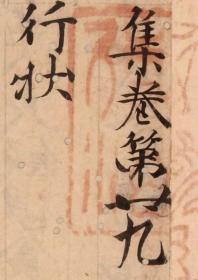 集卷第廿九
行狀